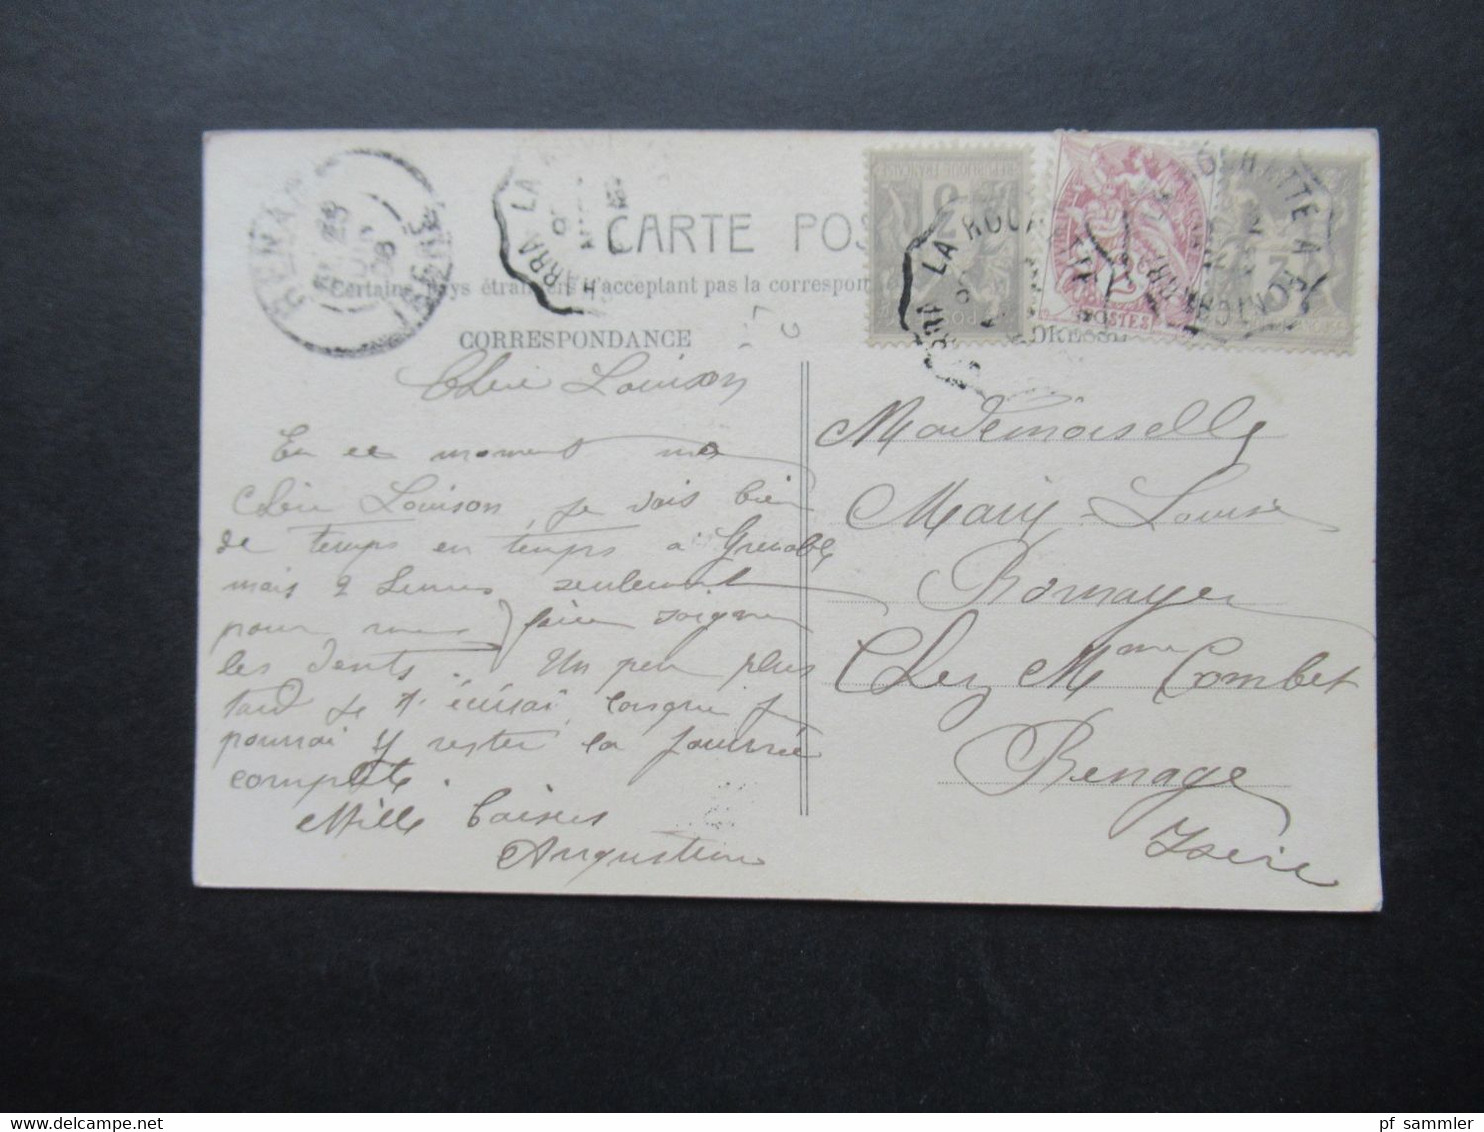 CARTE POS
Certains pays étrangers n'acceptant pas la correspon
CORRESPONDANCE
Chère Louison
En ce moment ma
chère Louison je vais bien
de temps en temps à Grenoble
mais 2 heures seulement
pour me faire soigner
les dents. Un peu plus
tard je t'écrirai lorsque je
pourrai y rester la journée
complète.
Mille baisers
Augustine
LA ROCH
LA ROCH
POSTES
Mademoiselle
Marie Louise
Romayer
Chez Mme Combet
Renage
Isère
delcampe.net
pf_sammler